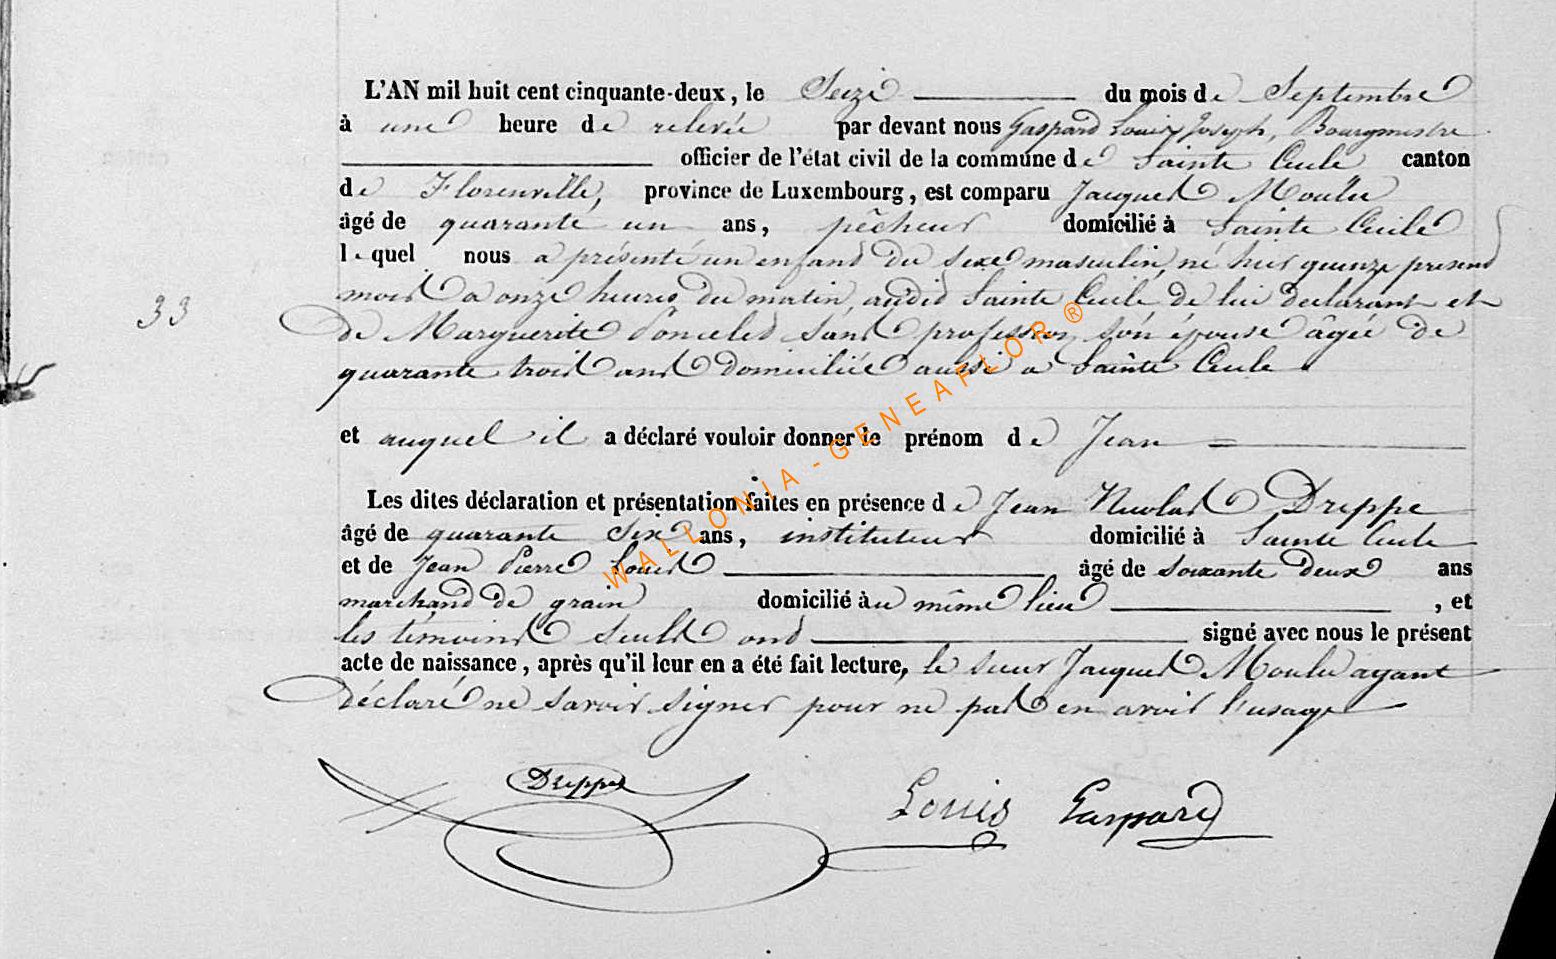 L'AN mil huit cent cinquante-deux, le Seize du mois de Septembre
à une heure de relevée par devant nous Gaspard Louis Joseph, Bourgmestre
officier de l'état civil de la commune de Sainte Cecile canton
de Florenville, province de Luxembourg, est comparu Jacques Moulu
âgé de quarante un ans, pêcheur domicilié à Sainte Cecile
lequel nous a présenté un enfand du sexe masculin, né hier quinze presend
mois a onze heures du matin audid Sainte Cecile de lui declarant et
de Marguerite Ponceled sans profession son épouse âgée de
quarante trois ans domiciliée aussi a Sainte Cecile
33
et auquel il a déclaré vouloir donner le prénom de Jean
Les dites déclaration et présentation faites en présence de Jean Nicolas Dreppe
âgé de quarante six ans, instituteur domicilié à Sainte Cecile
et de Jean Pierre Louis âgé de soixante deux ans
marchand de grain domicilié au même lieu , et
les témoins seuls ond signé avec nous le présent
acte de naissance, après qu'il leur en a été fait lecture, le sieur Jacques Moulu ayant
déclaré ne savoir signer pour ne pas en avoir l'usage
Dreppe Louis Gaspard
WALLONIA-GENEAFLOR ®